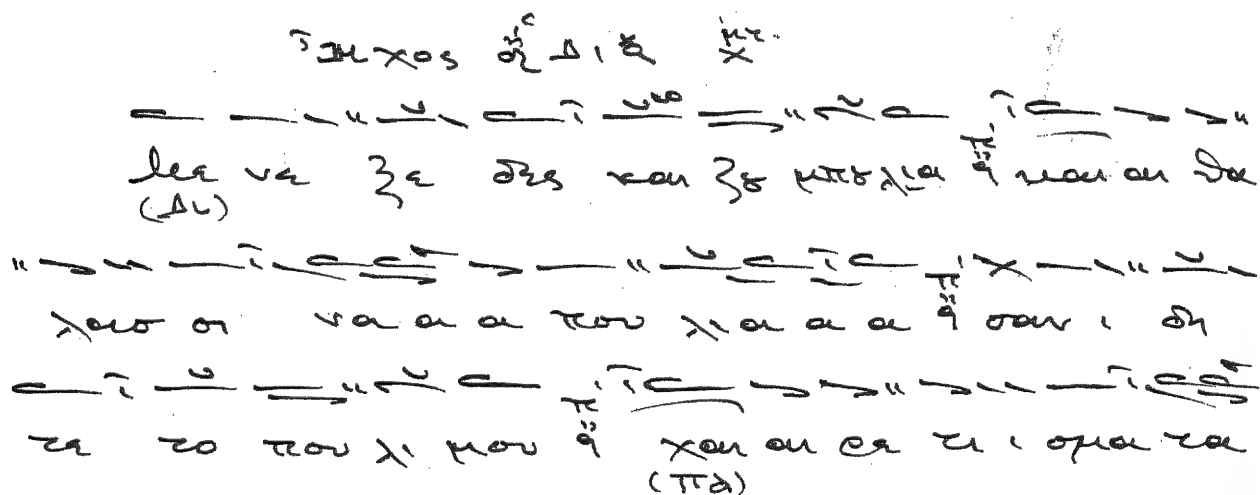 Ἦχος Δι
με νε ξε δες και ζȣ μπȣλια και αι θα
(Δι)
λασσι να α α που λια α α α σαν ι δη
τε το που λι μου χαι αι ρε τι ι σμα τα
(Πα)